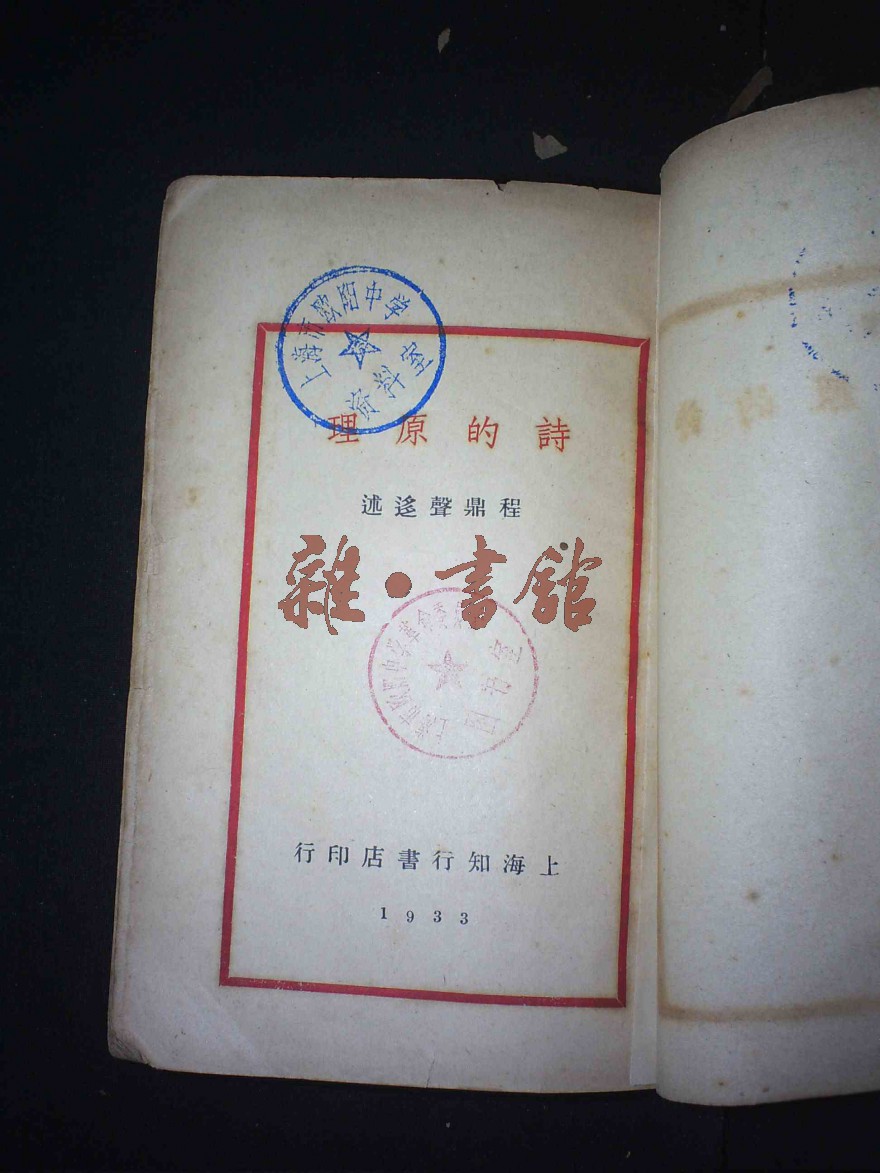 上海市欧阳中学
资料室
詩的原理
程鼎聲迻述
雜·書館
图书室
上海知行書店印行
1933